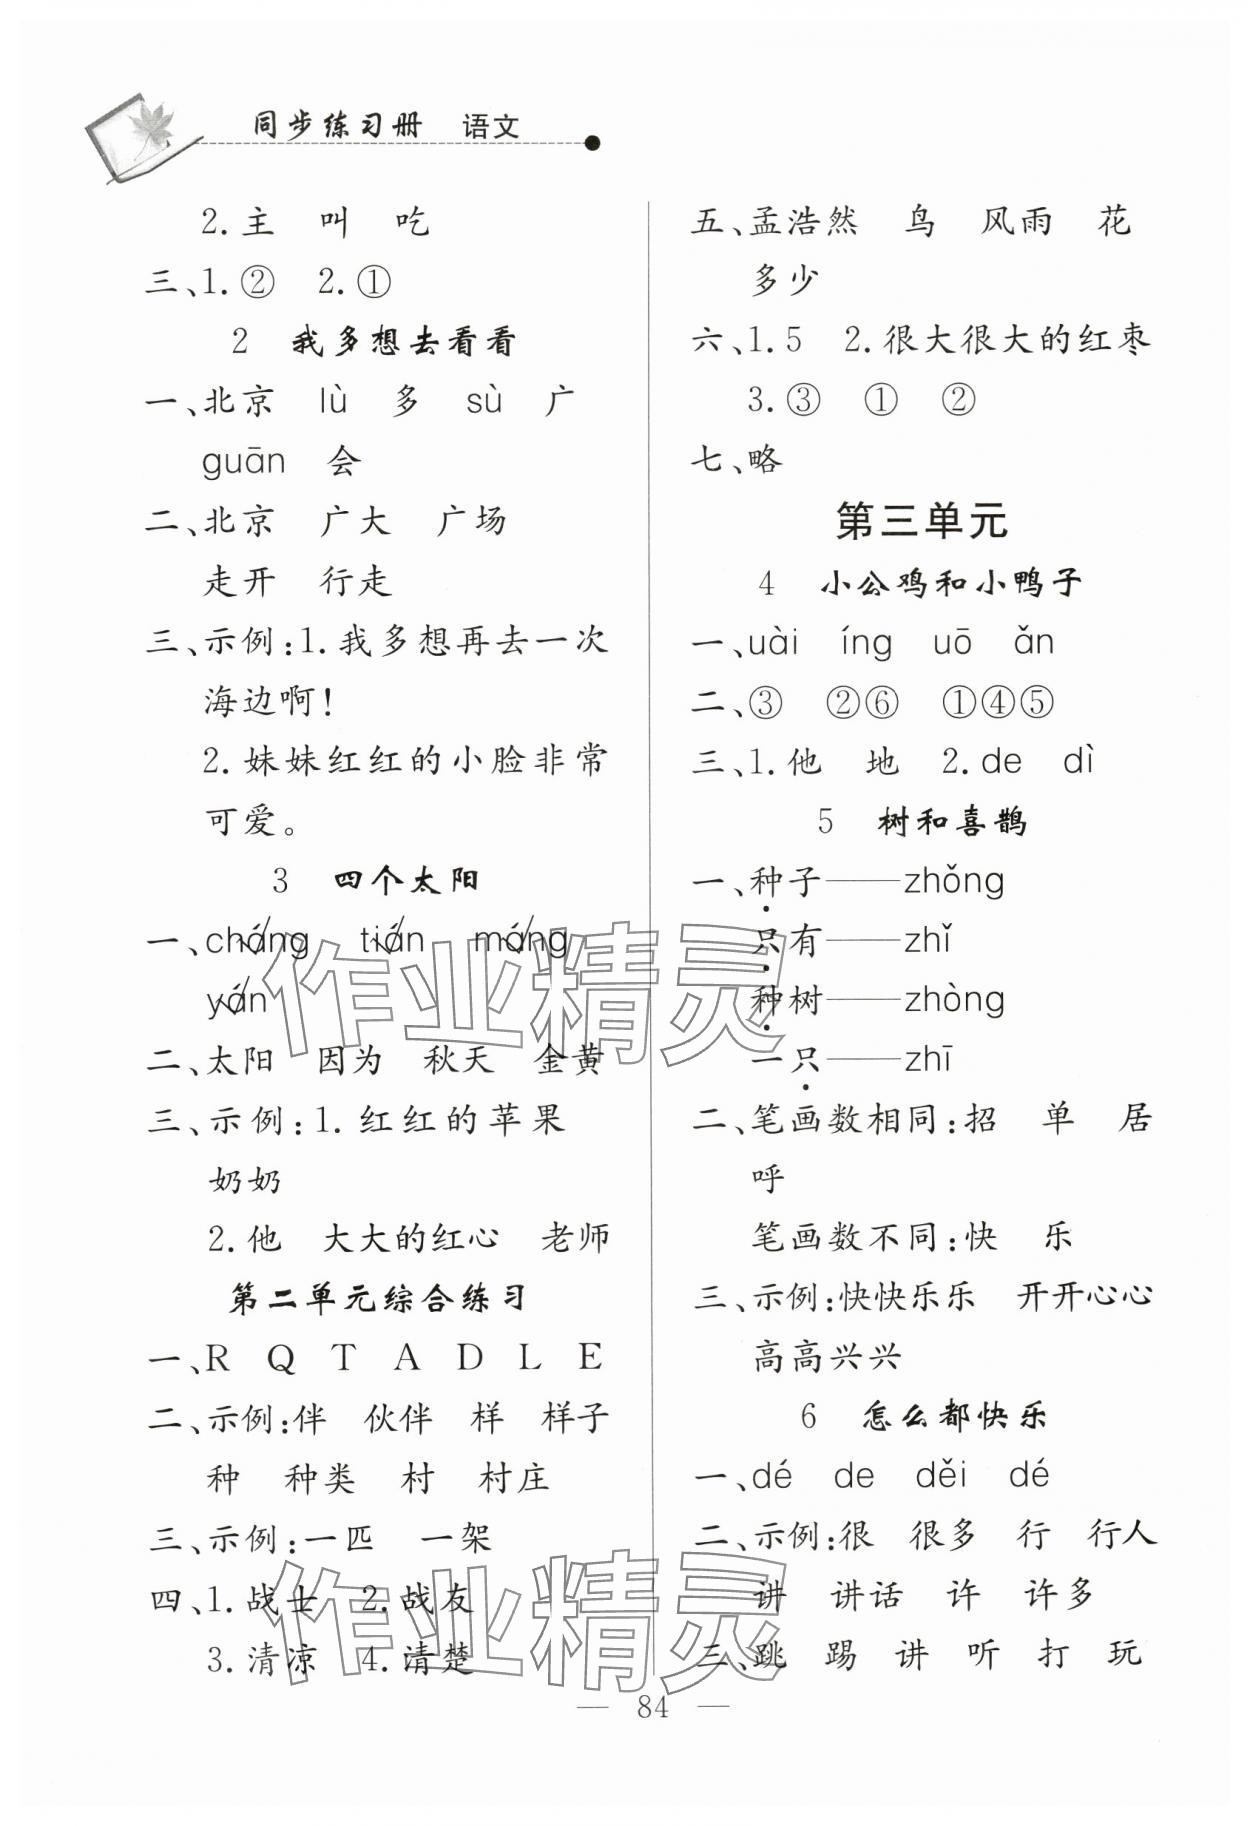 同步练习册 语文
2.主 叫 吃
三、1.② 2.①
2 我多想去看看
一、北京 lù 多 sù 广
guān 会
二、北京 广大 广场
走开 行走
三、示例:1.我多想再去一次
海边啊!
2.妹妹红红的小脸非常
可爱。
3 四个太阳
一、cháng tián máng
yán
二、太阳 因为 秋天 金黄
三、示例:1.红红的苹果
奶奶
2.他 大大的红心 老师
第二单元综合练习
一、R Q T A D L E
二、示例:伴 伙伴 样 样子
种 种类 村 村庄
三、示例:一匹 一架
四、1.战士 2.战友
3.清凉 4.清楚
五、孟浩然 鸟 风雨 花
多少
六、1.5 2.很大很大的红枣
3.③ ① ②
七、略
第三单元
4 小公鸡和小鸭子
一、uài íng uō ǎn
二、③ ②⑥ ①④⑤
三、1.他 地 2.de dì
5 树和喜鹊
一、种子——zhǒng
只有——zhǐ
种树——zhòng
一只——zhī
二、笔画数相同:招 单 居
呼
笔画数不同:快 乐
三、示例:快快乐乐 开开心心
高高兴兴
6 怎么都快乐
一、dé de děi dé
二、示例:很 很多 行 行人
讲 讲话 许 许多
三、跳 踢 讲 听 打 玩
— 84 —
作业精灵
作业精灵